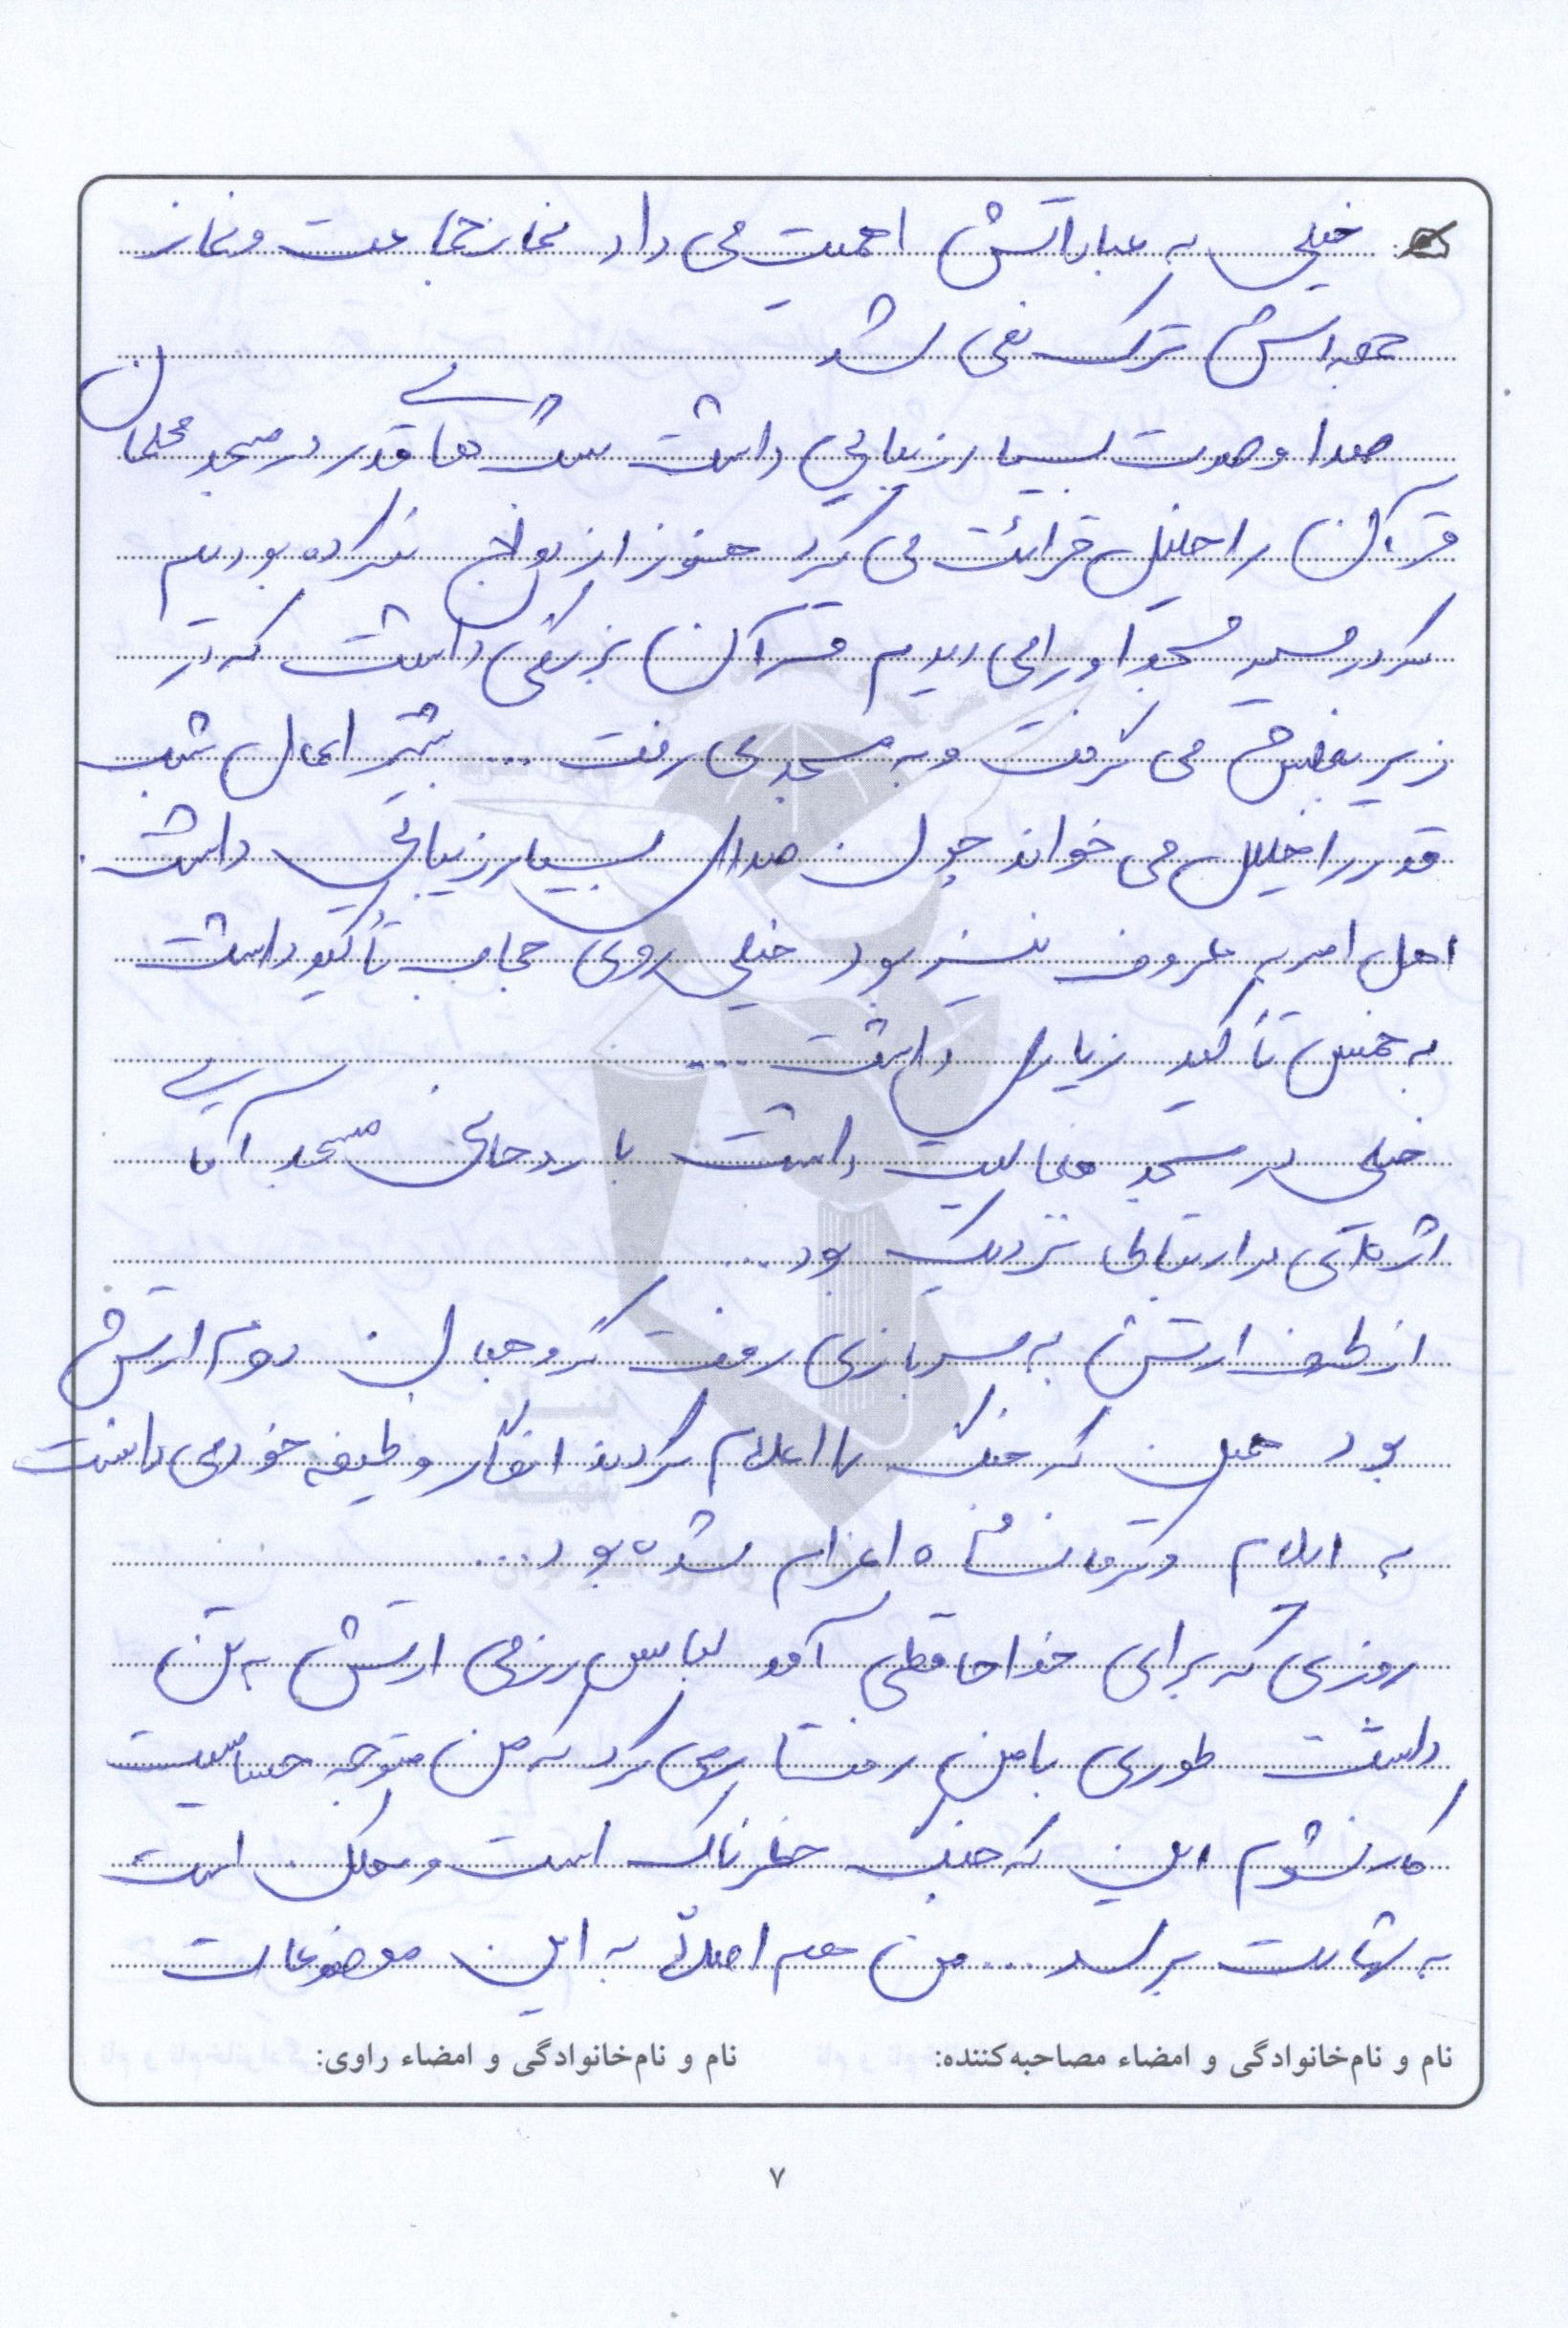 خیلی به عباداتش اهمیت می داد نماز جماعت و نماز
جمعه اش ترک نمی شد
صدا و صوت بسیار زیبایی داشت شب های قدر در مسجد محلمان
قرآن را خلیل قرائت می کرد هنوز ازدواج نکرده بودیم
که در مسیر مسجد او را می دیدم قرآن بزرگی داشت که در
زیر بغلش می گرفت و به مسجد می رفت ... بیشتر اعمال شب
قدر را خلیل می خواند چون صدای بسیار زیبایی داشت.
اهل امر به معروف نیز بود خیلی روی حجاب تأکید داشت
به خمس تأکید زیادی داشت ...
خیلی در مسجد فعالیت داشت با روحانی مسجد آقای
در ارتباطی نزدیک بود...
از طرف ارتش به سربازی رفت گروهبان دوم ارتش
بود همین که جنگ را اعلام کردند انگار وظیفه خود می دانست
به ایلام و کرمانشاه اعزام شده بود...
روزی که برای خداحافظی آمد لباس رزمی ارتش به تن
داشت طوری با من رفتار می کرد که من متوجه حساسیت
کار نشوم این که جنگ خطرناک است و ممکن است
به شهادت برسد ... من هم اصلاً به این موضوعات
نام و نام‌خانوادگی و امضاء مصاحبه‌کننده: نام و نام‌خانوادگی و امضاء راوی:
۷